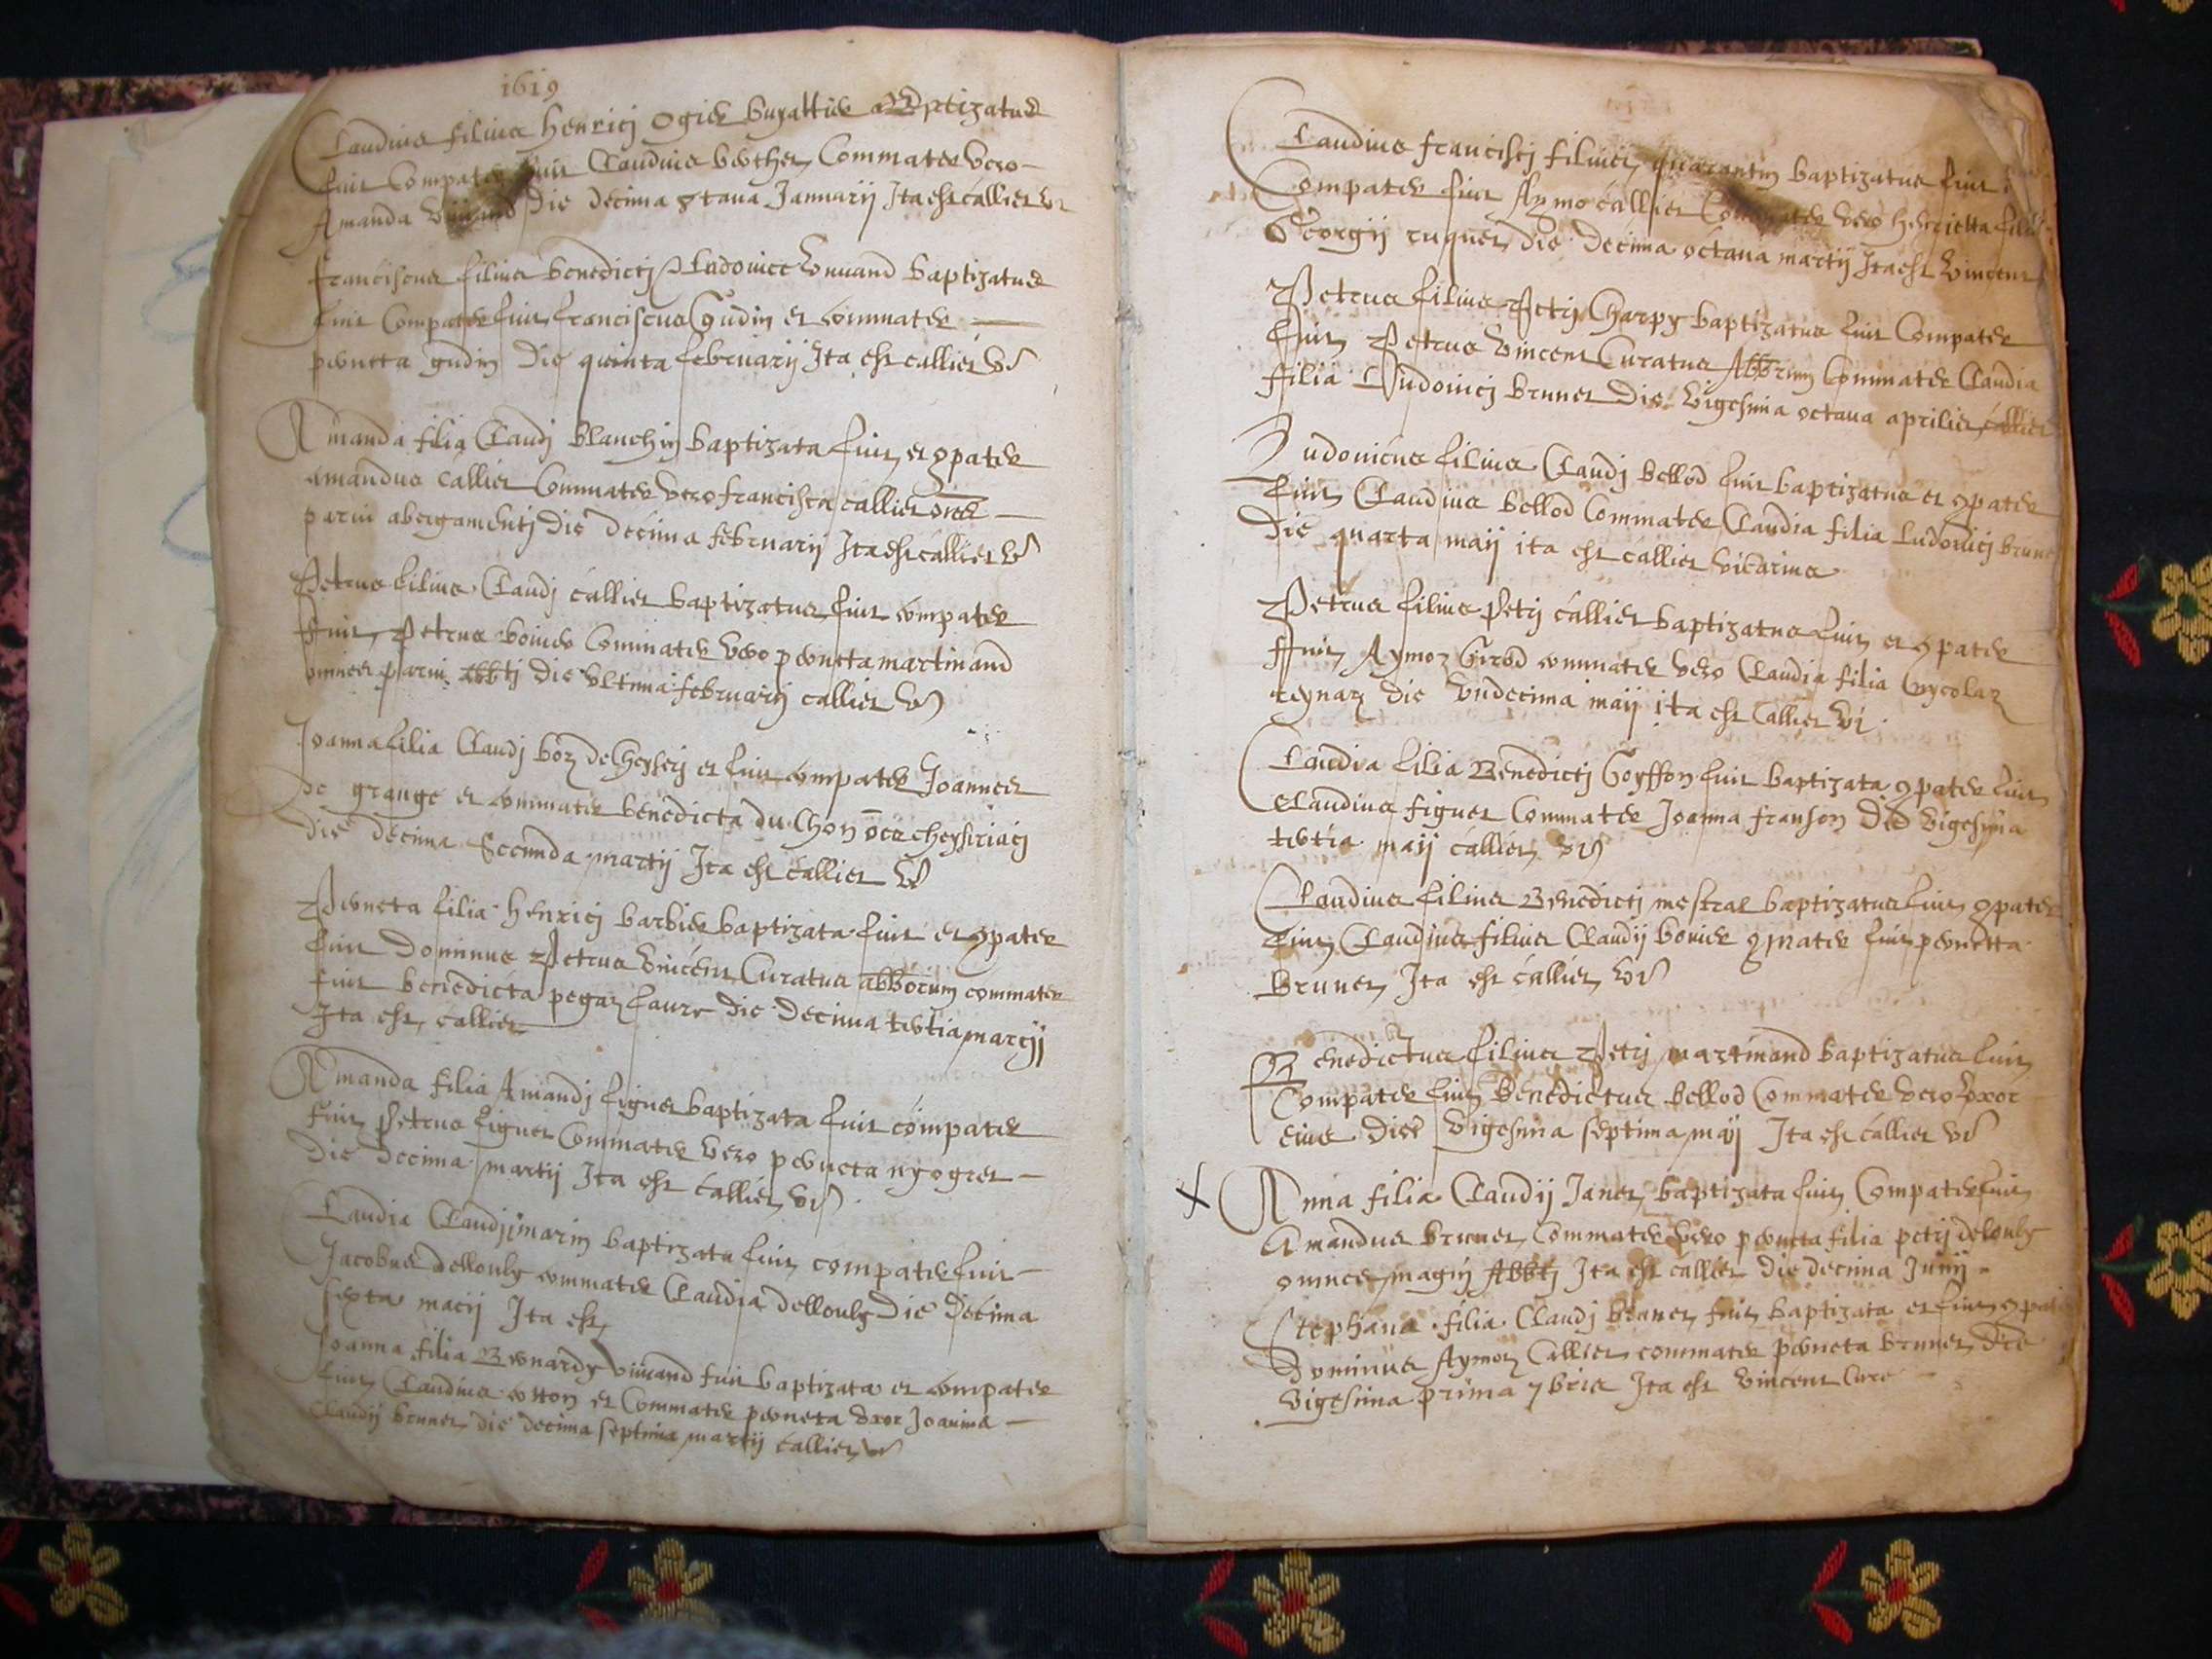 1619
Claudius filius Henrici Ogier baptizatus
fuit Compater fuit Claudius Commater vero
Amanda die decima 8tava Januarii Ita est callier vi
franciscus filius benedicti Ludovice vuivand baptizatus
fuit Compater fuit franciscus Gudin et commater
perneta gudin die quinta februarii Ita est callier vi
Amanda filia Claudi blanchin baptizata fuit et 9pater
amandus callier Commater vero francisca callier
parvi abergamenti die decima februarii Ita est callier vi
Petrus filius Claudi callier baptizatus fuit compater
fuit Petrus bouier Commater vero perneta martinand
omnes parvi abbti die ultima februarii callier vi
Joanna filia Claudi boz de Cheysery et fuit compater Joannes
de grange et commater benedicta du Chon cheysiriaci
die decima Secunda martii Ita est callier vi
Perneta filia henrici barbier baptizata fuit et 9pater
fuit dominus Petrus vincent Curatus abborum commater
fuit benedicta pegaz die decima tertia marcii
Ita est callier
Amanda filia Amandi figuet baptizata fuit compater
fuit Petrus figuet Commater vero perneta nyogret
die decima martii Ita est callier vi
Claudia Claudii marin baptizata fuit compater fuit
Jacobus dellouly commater Claudia dellouly die decima
sexta marcii Ita est
Joanna filia Bernardy vuivand fuit baptizata et compater
fuit Claudius et Commater perneta uxor Joanina
Claudii brunet die decima septima martii callier vi
Claudius francisci filius baptizatus fuit
Compater fuit Aymo callier Commater vero henrietta filia
Georgii ruquet die decima octava martii Ita est vincent
Petrus filius Petri Charpy baptizatus fuit Compater
fuit Petrus vincent Curatus Abbrum Commater Claudia
filia Ludovici brunet die vigesima octava aprilis callier
Ludovicus filius Claudi bellod fuit baptizatus et 9pater
fuit Claudius bellod Commater Claudia filia Ludovici brunet
die quarta maii ita est callier vicarius
Petrus filius Petri callier baptizatus fuit et 9pater
fuit Aymoz Girod commater vero Claudia filia nycolaz
reynaz die undecima maii ita est callier vi
Claudia filia Benedicti Goyffon fuit baptizata 9pater fuit
Claudius figuet Commater Joanna franson die vigesima
tertia maii callier vi
Claudius filius Benedicti mestral baptizatus fuit 9pater
fuit Claudius filius Claudii bouier 9mater fuit pernetta
Brunet Ita est callier vi
Benedictus filius Petri martinand baptizatus fuit
Compater fuit Benedictus bellod Commater vero uxor
eius die vigesima septima maii Ita est callier vi
X Anna filia Claudii Janet baptizata fuit Compater fuit
Amandus brunet Commater vero perneta filia petri delouly
omnes magni Abbti Ita est callier die decima Junii
Stephana filia Claudi brunet fuit baptizata et fuit 9pater
Dominus Aymoz Callier commater perneta brunet die
vigesima prima 7bris Ita est vincent Cure